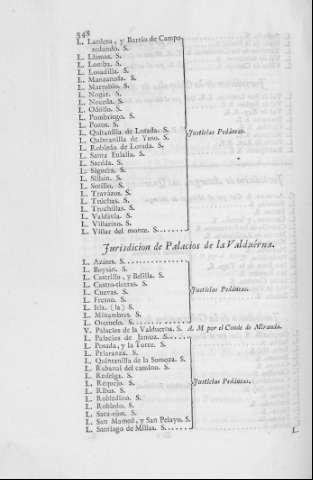 548
L. Landeza, y Barrio de Campo-
redondo. S.
L. Llamas. S.
L. Lomba. S.
L. Losadilla. S.
L. Manzaneda. S.
L. Marrubio. S.
L. Nogar. S.
L. Noceda. S.
L. Odollo. S.
L. Pombriego. S.
L. Pozos. S.
L. Quintanilla de Losada. S.
L. Quintanilla de Yuso. S.
L. Robleda de Losada. S.
L. Santa Eulalia. S.
L. Saceda. S.
L. Sigueya. S.
L. Silban. S.
L. Sotillo. S.
L. Travazos. S.
L. Truchas. S.
L. Truchillas. S.
L. Valdavia. S.
L. Villarino. S.
L. Villar del monte. S.
Justicias Pedáneas.
Jurisdicion de Palacios de la Valduerna.
L. Azares. S.
L. Boysán. S.
L. Castrillo, y Belilla. S.
L. Castro-tierras. S.
L. Cuevas. S.
L. Fresno. S.
L. Isla. (la) S.
L. Miñambres. S.
L. Oteruelo. S.
Justicias Pedáneas.
V. Palacios de la Valduerna. S. A. M. por el Conde de Miranda.
L. Palacios de Jamuz. S.
L. Posada, y la Torre. S.
L. Priaranza. S.
L. Quintanilla de la Somoza. S.
L. Rabanal del camino. S.
L. Redelga. S.
L. Requejo. S.
L. Ribas. S.
L. Robledino. S.
L. Robledo. S.
L. Saca-ojos. S.
L. San Mamed, y San Pelayo. S.
L. Santiago de Millas. S.
Justicias Pedáneas.
L.